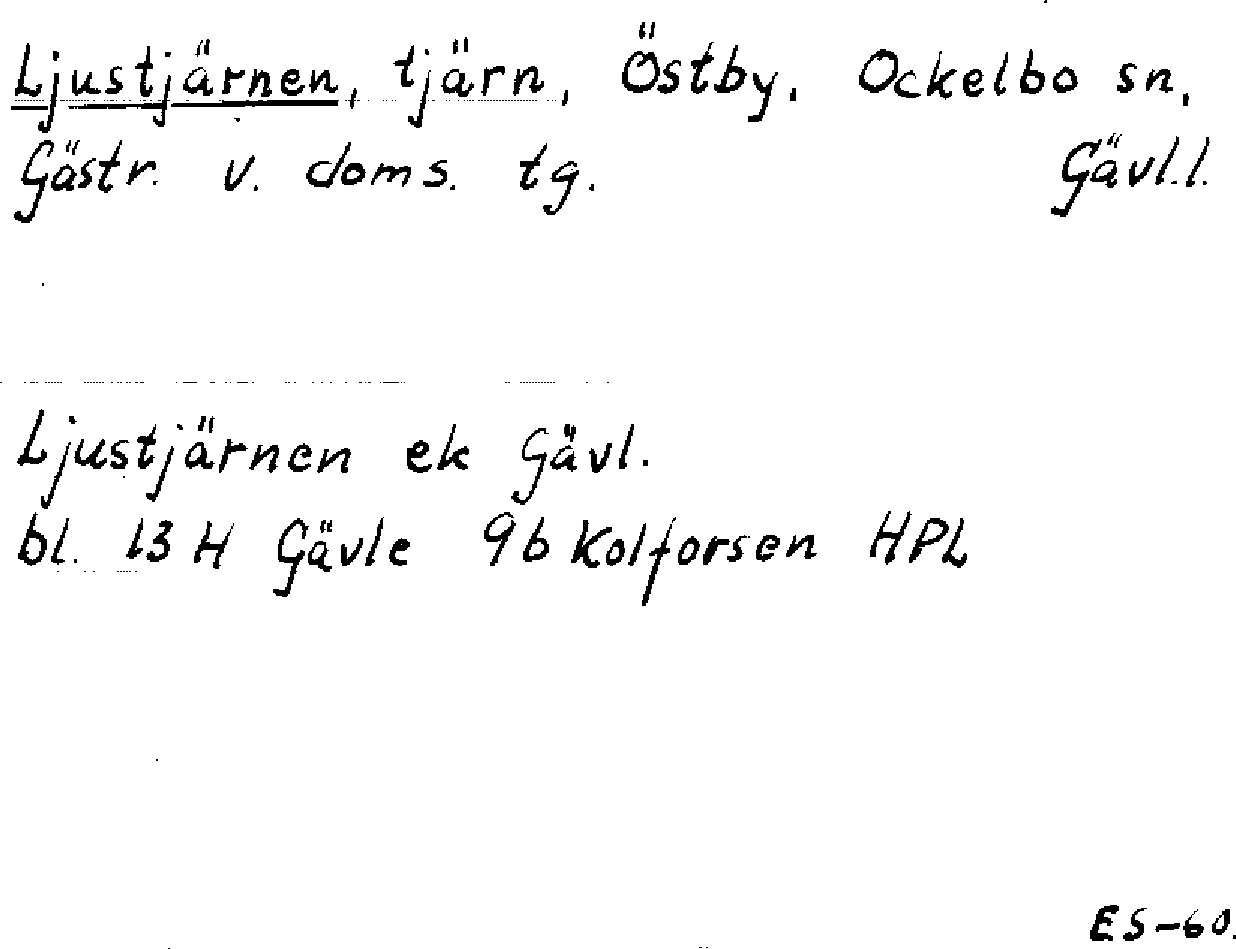 Ljustjärnen, tjärn, Östby, Ockelbo sn,
Gästr. v. doms. tg. Gävl.l.
Ljustjärnen ek Gävl.
bl. 13 H Gävle 9b Kolforsen HPL
ES-60.